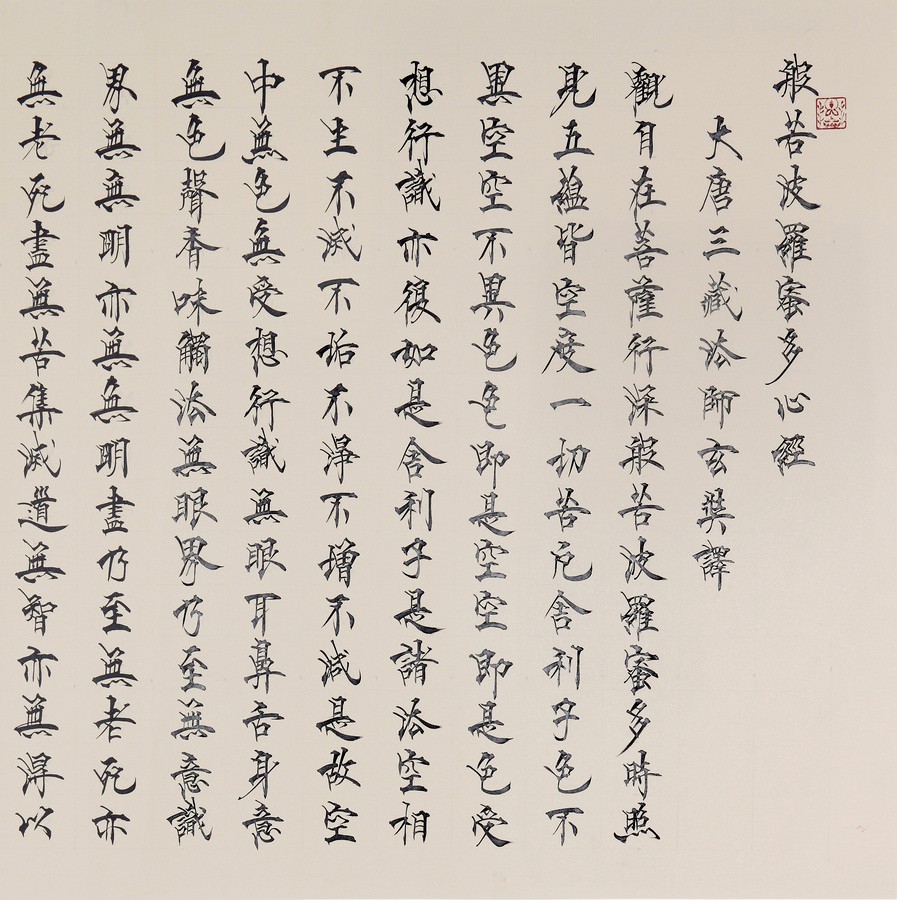 般若波羅蜜多心經
大唐三藏法師玄奘譯
觀自在菩薩行深般若波羅蜜多時照
見五蘊皆空度一切苦厄舍利子色不
異空空不異色色即是空空即是色受
想行識亦復如是舍利子是諸法空相
不生不滅不垢不淨不增不減是故空
中無色無受想行識無眼耳鼻舌身意
無色聲香味觸法無眼界乃至無意識
界無無明亦無無明盡乃至無老死亦
無老死盡無苦集滅道無智亦無得以